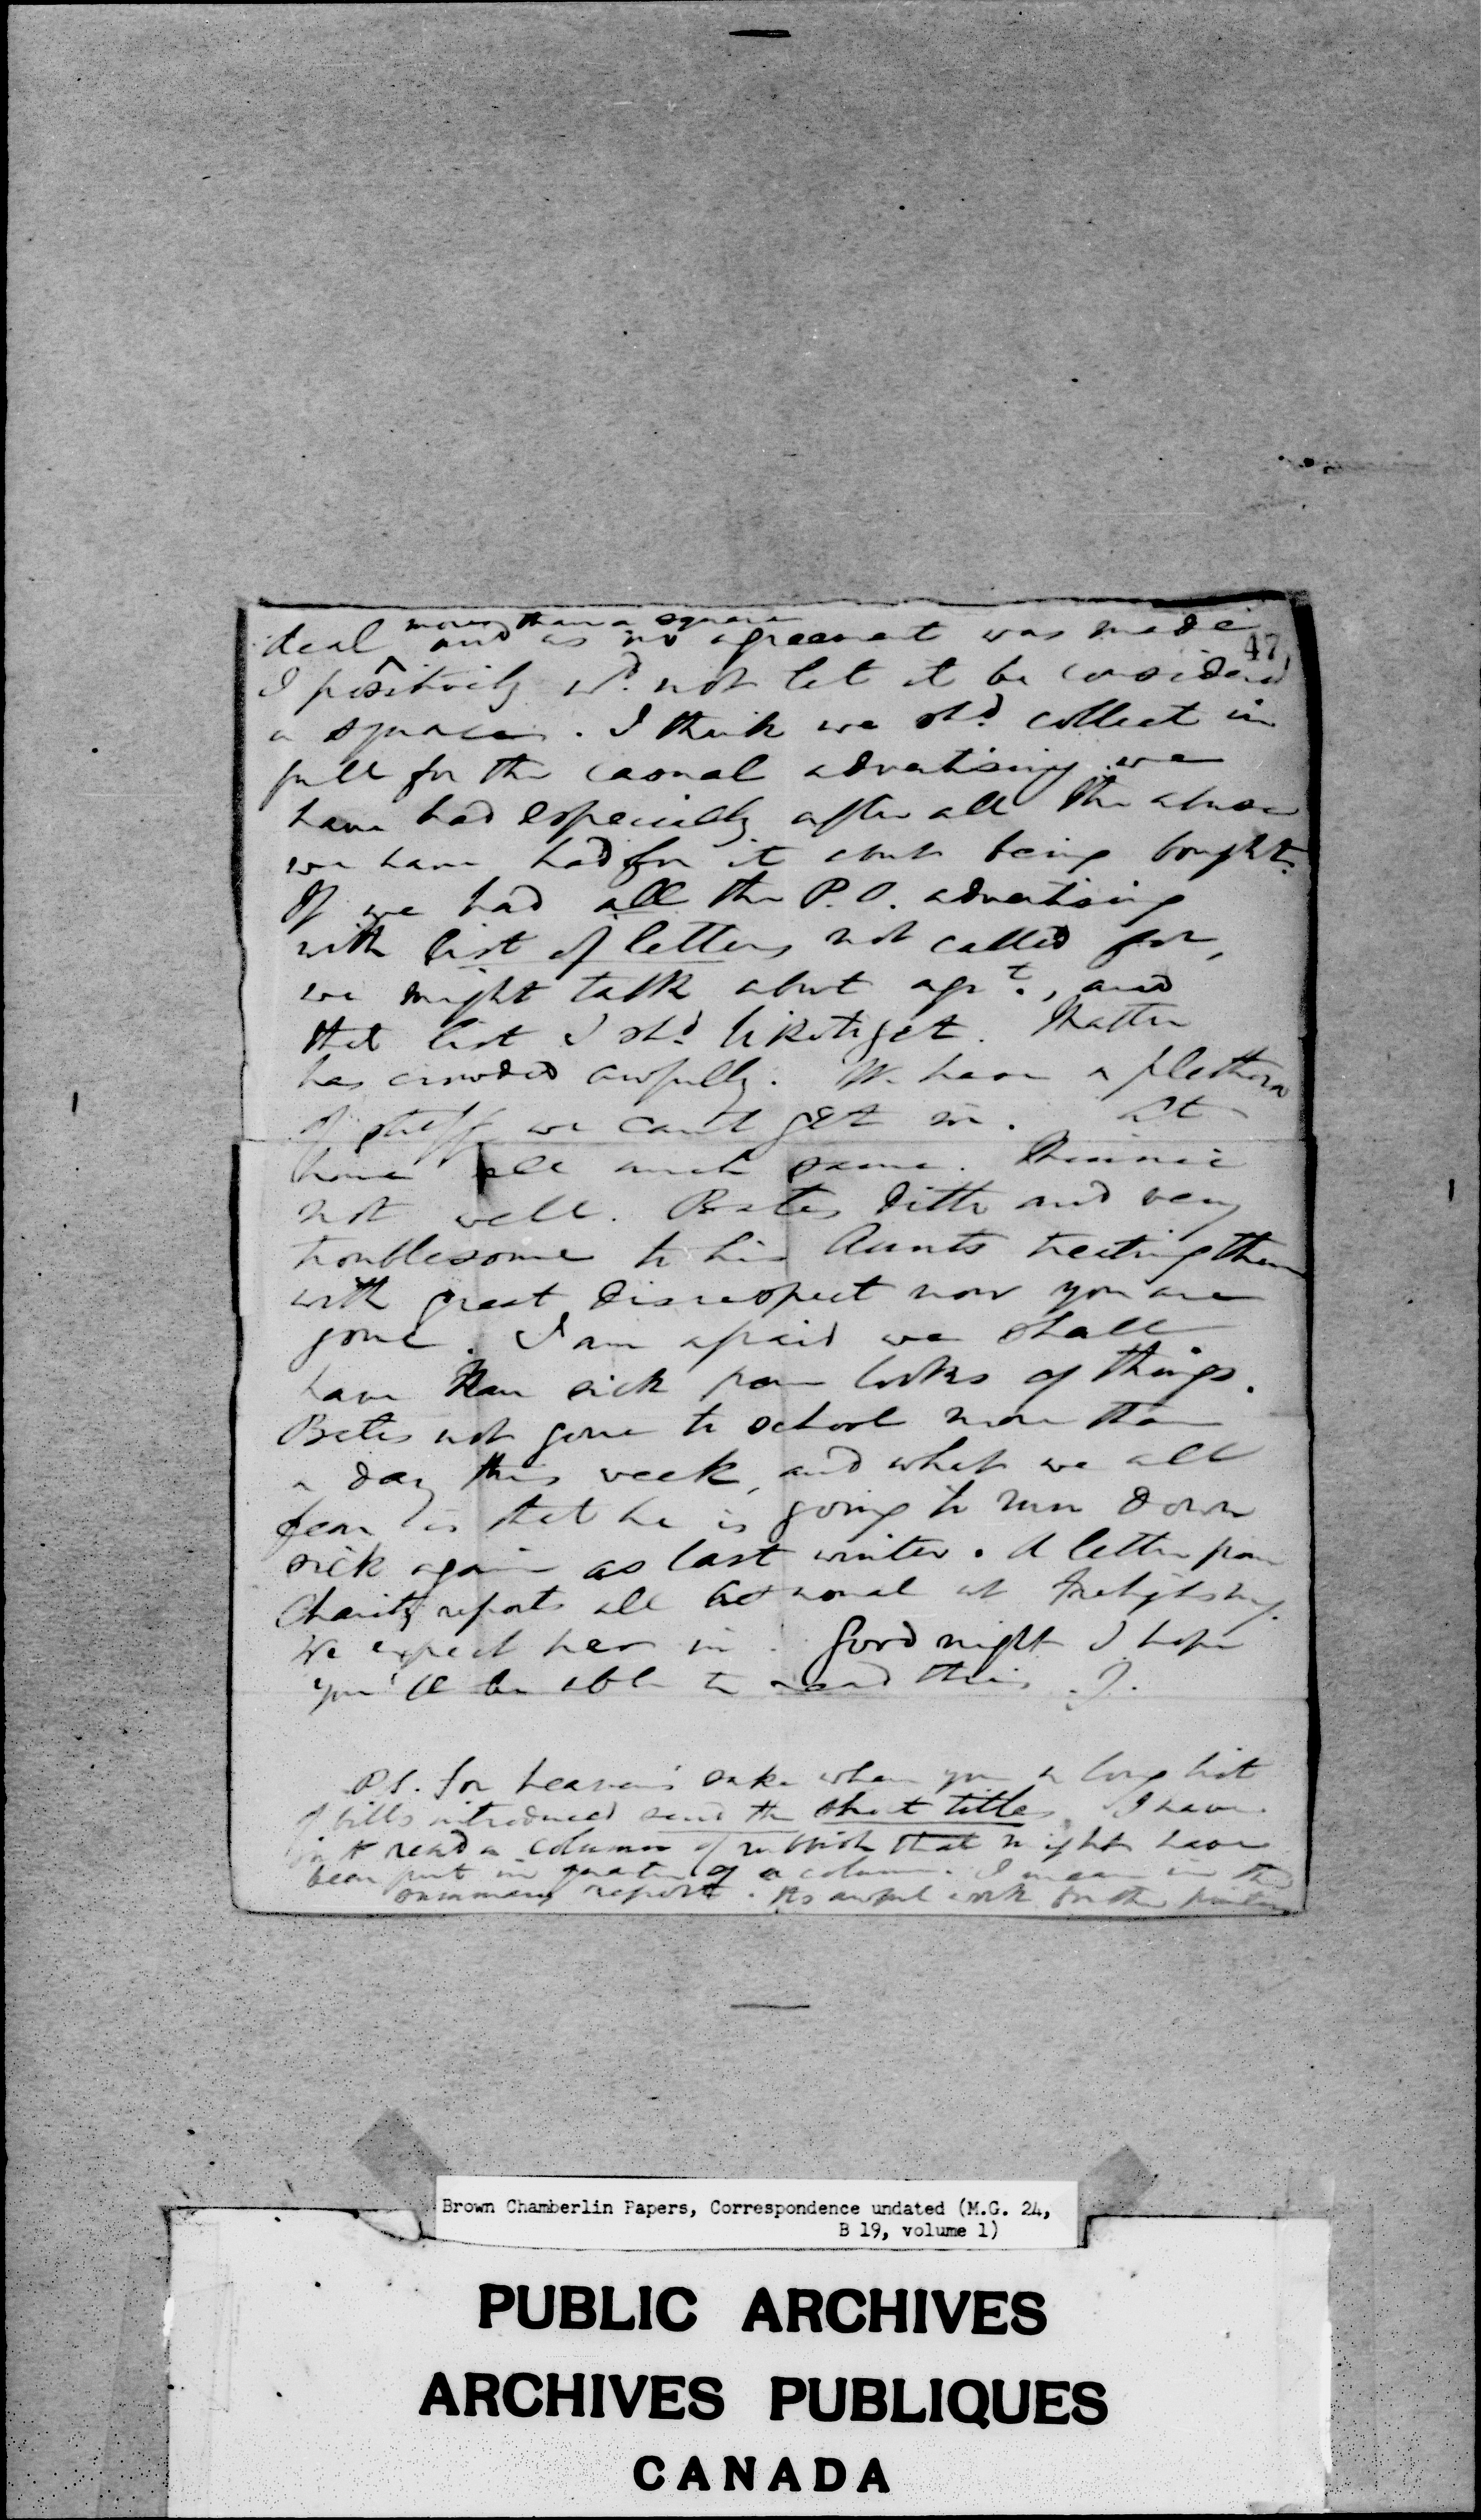 more than a square
deal and as no agreement was made
47
I positively wd. not let it be considered
a square. I think we shd. collect in
full for the casual advertising we
have had especially after all the abuse
we have had for it abt being bought.
If we had all the P.O. advertising
with list of letters not called for,
we might talk about agrt., and
that list I shd. like to get. Matter
has crowded awfully. We have a plethora
of stuff we can't get in. At
home all much same. Minnie
not well. Bates ditto and very
troublesome to his Aunts treating them
with great disrespect now you are
gone. I am afraid we shall
have sick from looks of things.
Bates not gone to school more than
a day this week, and what we all
fear is that he is going to run down
sick again as last winter. A letter from
Charity reports all as usual at Frelighsburg.
We expect her in. Good night I hope
you'll be able to read this. J.
P.S. for heaven's sake when you a long list
of bills introduced send the short titles. I have
to read a column of rubbish that might have
been put in quarter of a column. I mean in the
summary report. Its awful work for the
Brown Chamberlin Papers, Correspondence undated (M.G. 24,
B 19, volume 1)
PUBLIC ARCHIVES
ARCHIVES PUBLIQUES
CANADA